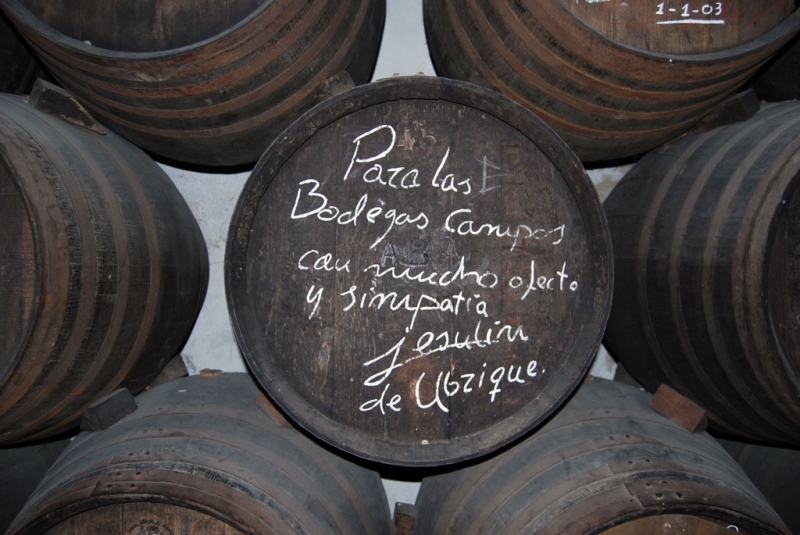 1-1-03
Para las
Bodegas Campos
con mucho afecto
y simpatía
Jesulin
de Ubrique.